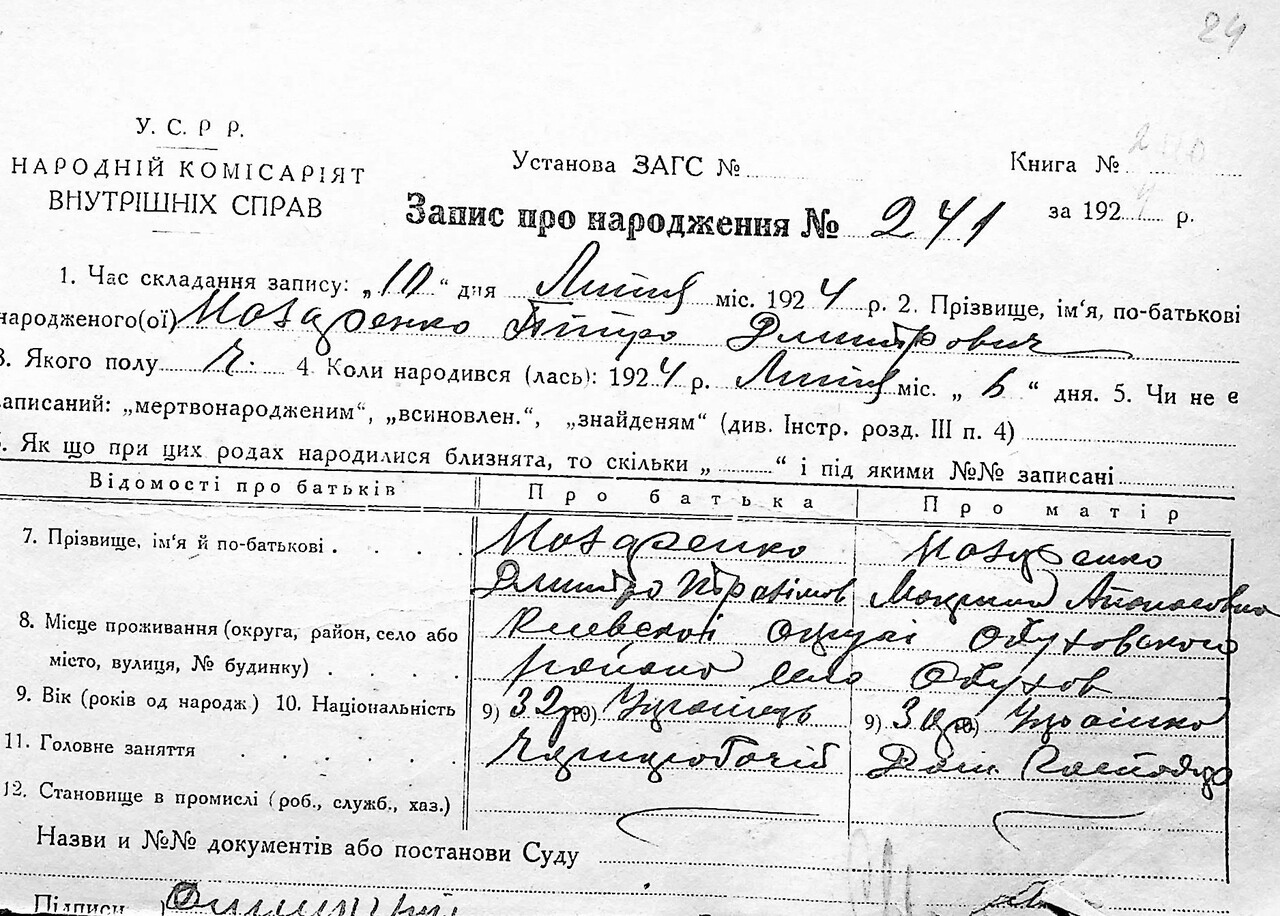 24
У. С. Р Р.
НАРОДНІЙ КОМІСАРІЯТ
ВНУТРІШНІХ СПРАВ
Установа ЗАГС №
Книга №
Запис про народження № 241
за 192 р.
1. Час складання запису: „10“ дня Липня міс. 1924 р. 2. Прізвище, ім'я, по-батькові
народженого(ої) Петро Дмитрович
3. Якого полу ч. 4. Коли народився (лась): 1924 р. Липня міс. „6“ дня. 5. Чи не є
записаний: „мертвонародженим“, „всиновлен.“, „знайденям“ (див. Інстр. розд. III п. 4)
. Як що при цих родах народилися близнята, то скільки „ “ і під якими №№ записані
Відомості про батьків Про батька Про матір
7. Прізвище, ім'я й по-батькові
Дмитро
8. Місце проживання (округа, район, село або Киевской округі Обуховского
місто, вулиця, № будинку) района село Обухов
9. Вік (років од народж) 10. Національність 9) 32 р 10) Українець 9) 30 р 10) Українка
11. Головне заняття Дом. Господар
12. Становище в промислі (роб., служб., хаз.)
Назви и №№ документів або постанови Суду
Підписи